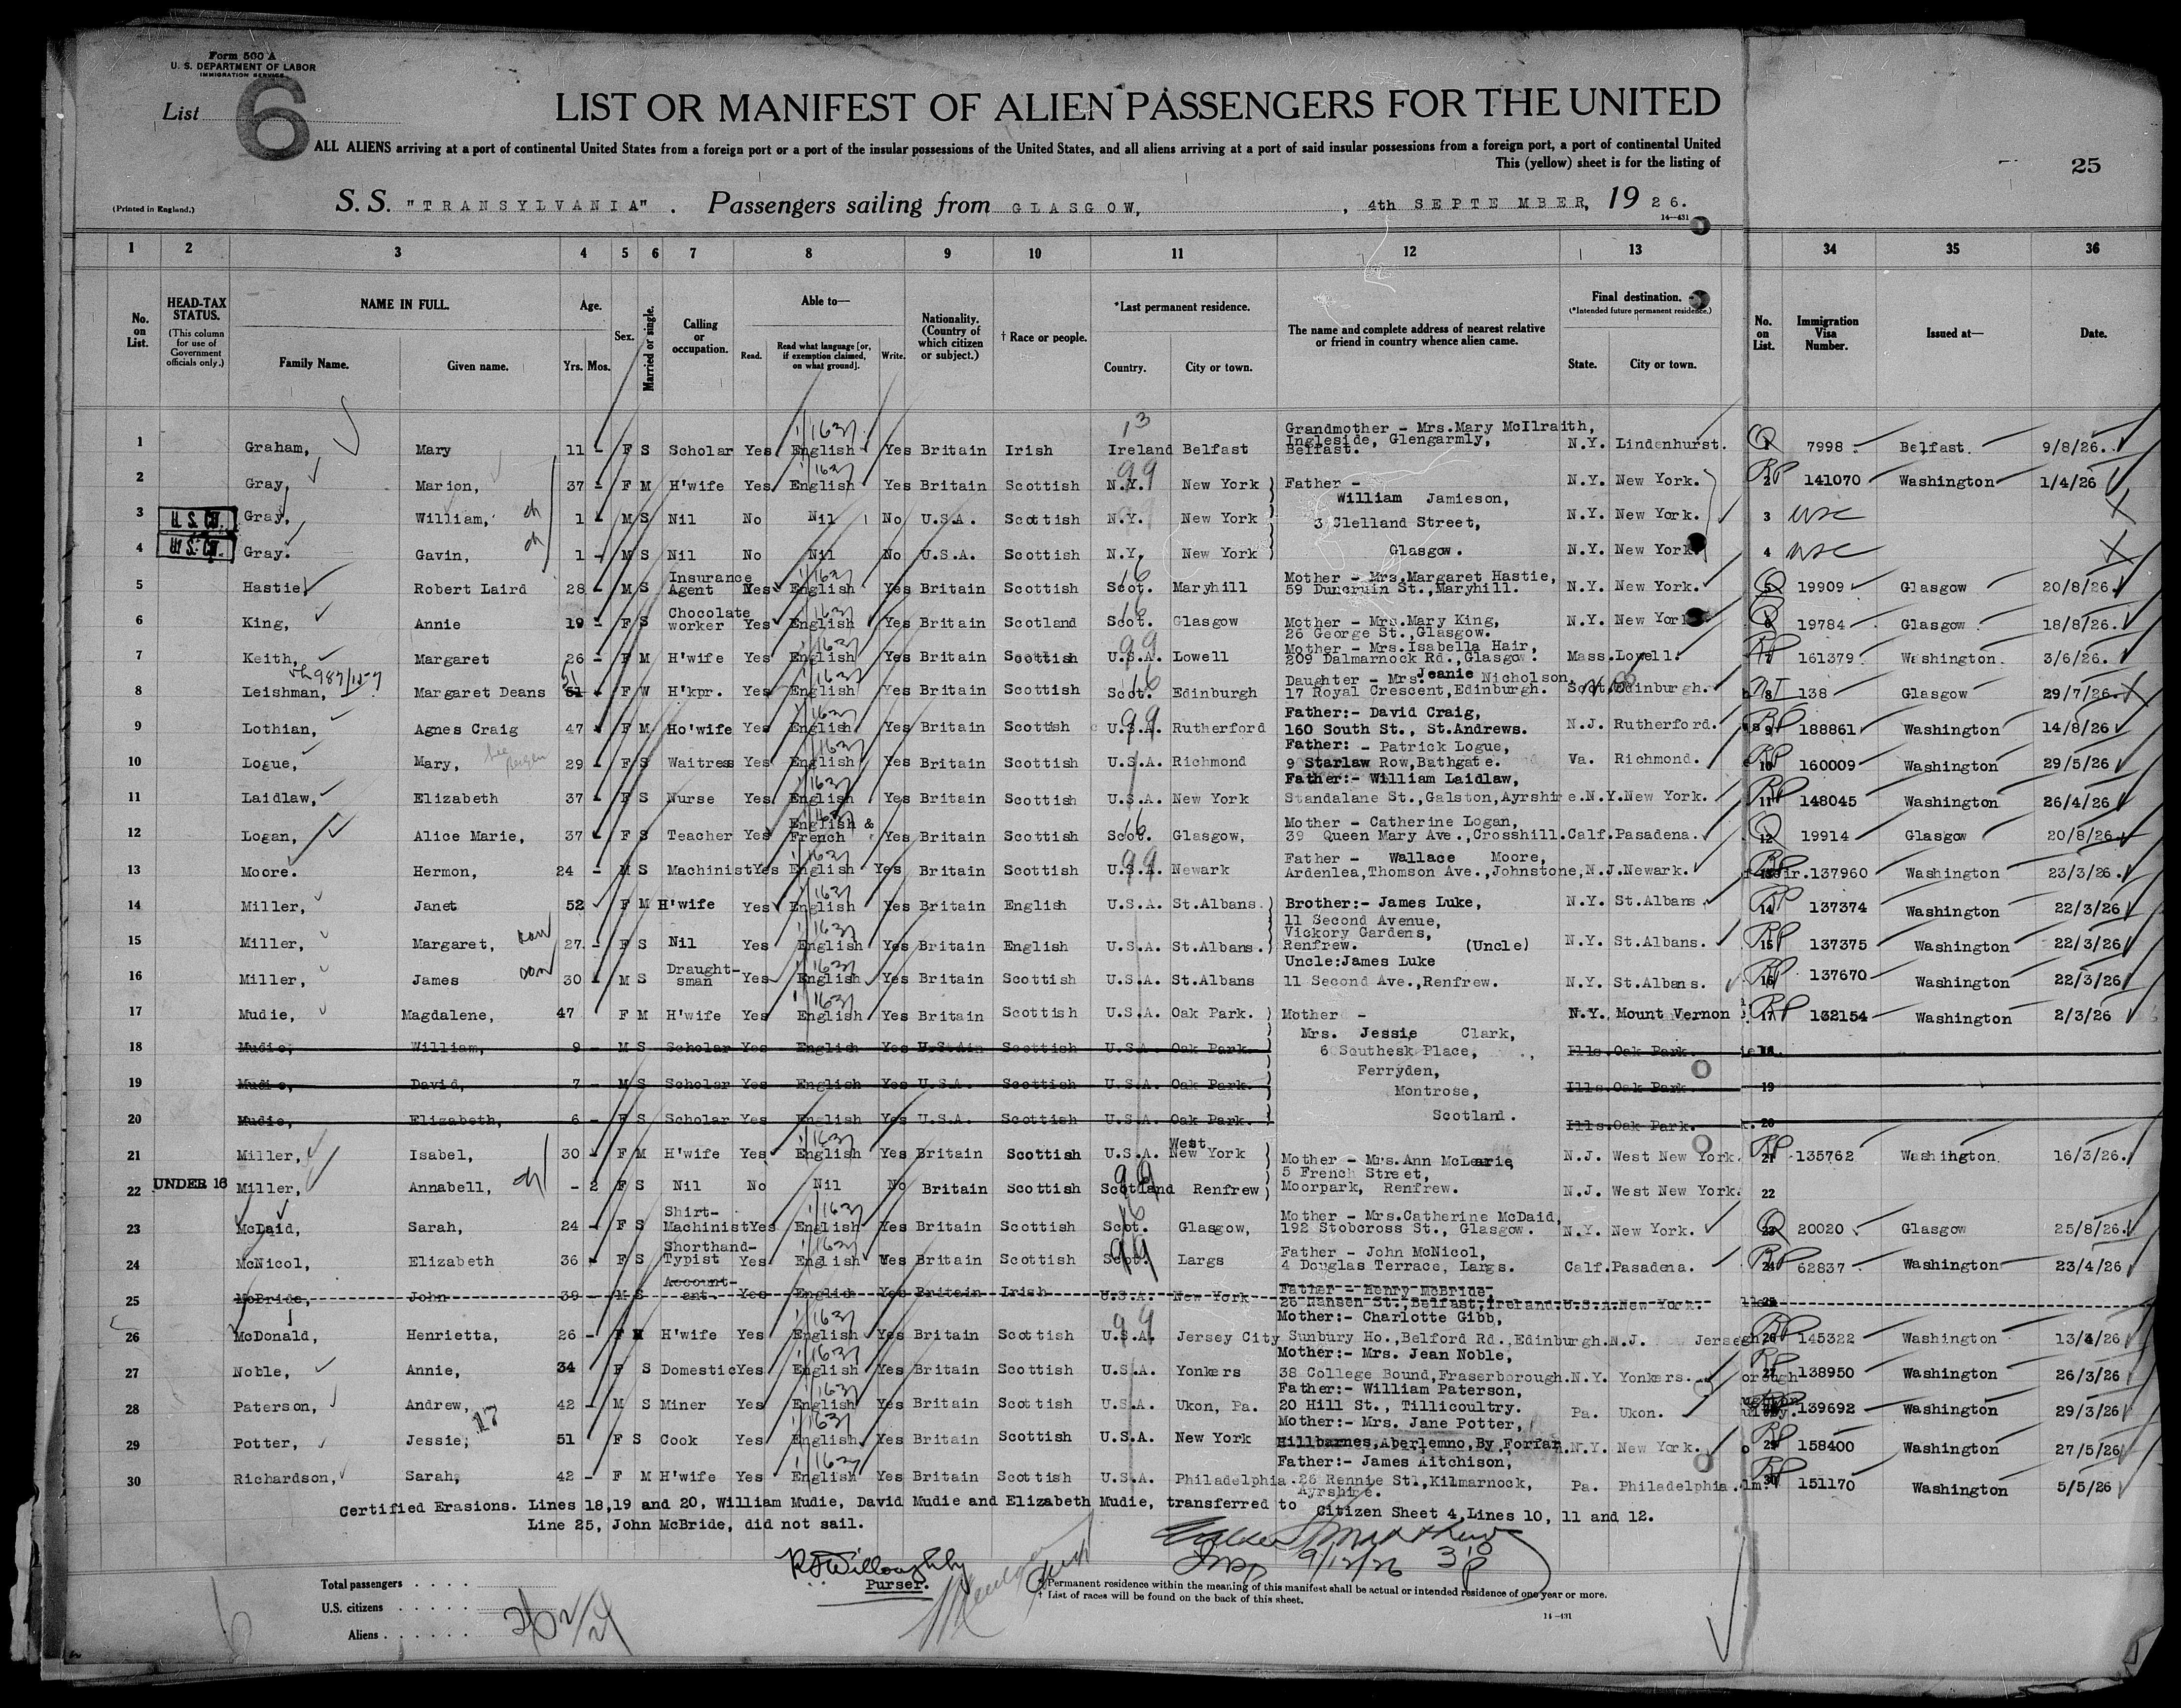 Form 500 A
U. S. DEPARTMENT OF LABOR
IMMIGRATION SERVICE
List 6
LIST OR MANIFEST OF ALIEN PASSENGERS FOR THE UNITED
ALL ALIENS arriving at a port of continental United States from a foreign port or a port of the insular possessions of the United States, and all aliens arriving at a port of said insular possessions from a foreign port, a port of continental United
This (yellow) sheet is for the listing of
25
(Printed in England.)
S. S. "TRANSYLVANIA". Passengers sailing from GLASGOW, , 4th SEPTEMBER, 1926.
14—431
1 2 3 4 5 6 7 8 9 10 11 12 13 34 35 36
No. on List.
HEAD-TAX STATUS.
(This column for use of Government officials only.)
NAME IN FULL.
Family Name. Given name.
Age.
Yrs. Mos.
Sex.
Married or single.
Calling or occupation.
Able to—
Read. Read what language [or, if exemption claimed, on what ground]. Write.
Nationality. (Country of which citizen or subject.)
† Race or people.
*Last permanent residence.
Country. City or town.
The name and complete address of nearest relative or friend in country whence alien came.
Final destination.
(*Intended future permanent residence.)
State. City or town.
No. on List.
Immigration Visa Number.
Issued at—
Date.
1 Graham, Mary 11 - F S Scholar Yes English Yes Britain Irish Ireland Belfast Grandmother - Mrs.Mary McIlraith, Ingleside, Glengarmly, Belfast. N.Y. Lindenhurst. 1 7998 Belfast. 9/8/26.
2 Gray, Marion, 37 - F M H'wife Yes English Yes Britain Scottish N.Y. New York Father - William Jamieson, N.Y. New York. 2 141070 Washington 1/4/26
3 U.S.CIT. Gray, William, ch 1 - M S Nil No Nil No U.S.A. Scottish N.Y. New York 3 Clelland Street, N.Y. New York. 3 USC
4 U.S.CIT. Gray. Gavin, ch 1 - M S Nil No Nil No U.S.A. Scottish N.Y. New York Glasgow. N.Y. New York 4 USC
5 Hastie Robert Laird 28 - M S Insurance Agent Yes English Yes Britain Scottish Scot. Maryhill Mother - Mrs.Margaret Hastie, 59 Duncruin St.,Maryhill. N.Y. New York. 5 19909 Glasgow 20/8/26.
6 King, Annie 19 - F S Chocolate worker Yes English Yes Britain Scotland Scot. Glasgow Mother - Mrs.Mary King, 26 George St.,Glasgow. N.Y. New York 6 19784 Glasgow 18/8/26.
7 Keith, Margaret 26 - F M H'wife Yes English Yes Britain Scottish U.S.A. Lowell Mother - Mrs.Isabella Hair, 209 Dalmarnock Rd.,Glasgow. Mass.Lowell. 7 161379 Washington. 3/6/26.
8 Leishman, Margaret Deans 51 F W H'kpr. Yes English Yes Britain Scottish Scot. Edinburgh Daughter - Mrs.Jeanie Nicholson, 17 Royal Crescent,Edinburgh. Scot.Edinburgh. 8 138 Glasgow 29/7/26.
9 Lothian, Agnes Craig 47 F M Ho'wife Yes English Yes Britain Scottish U.S.A. Rutherford Father:- David Craig, 160 South St., St.Andrews. N.J. Rutherford. 9 188861 Washington 14/8/26
10 Logue, Mary, 29 - F S Waitress Yes English Yes Britain Scottish U.S.A. Richmond Father: - Patrick Logue, 9 Starlaw Row,Bathgate. Va. Richmond. 10 160009 Washington 29/5/26
11 Laidlaw, Elizabeth 37 - F S Nurse Yes English Yes Britain Scottish U.S.A. New York Father:- William Laidlaw, Standalane St.,Galston,Ayrshire.N.Y.New York. 11 148045 Washington 26/4/26
12 Logan, Alice Marie, 37 - F S Teacher Yes English & French Yes Britain Scottish Scot. Glasgow, Mother - Catherine Logan, 39 Queen Mary Ave.,Crosshill.Calf.Pasadena. 12 19914 Glasgow 20/8/26
13 Moore. Hermon, 24 - M S Machinist Yes English Yes Britain Scottish U.S.A. Newark Father - Wallace Moore, Ardenlea,Thomson Ave.,Johnstone,N.J.Newark. 13 137960 Washington 23/3/26.
14 Miller, Janet 52 F M H'wife Yes English Yes Britain English U.S.A. St.Albans. Brother:- James Luke, N.Y. St.Albans. 14 137374 Washington 22/3/26
15 Miller, Margaret, 27 - F S Nil Yes English Yes Britain English U.S.A. St.Albans. 11 Second Avenue, Vickory Gardens, Renfrew. (Uncle) N.Y. St.Albans. 15 137375 Washington 22/3/26
16 Miller, James son 30 - M S Draught-sman Yes English Yes Britain Scottish U.S.A. St.Albans Uncle:James Luke 11 Second Ave.,Renfrew. N.Y. St.Albans. 16 137670 Washington 22/3/26
17 Mudie, Magdalene, 47 F M H'wife Yes English Yes Britain Scottish U.S.A. Oak Park. Mother - N.Y. Mount Vernon 17 132154 Washington 2/3/26
18 Mudie, William, 9 - M S Scholar Yes English Yes U.S.A. Scottish U.S.A. Oak Park. Mrs. Jessie Clark, 6 Southesk Place, Ills.Oak Park. 18
19 Mudie, David, 7 - M S Scholar Yes English Yes U.S.A. Scottish U.S.A. Oak Park. Ferryden, Montrose, Ills.Oak Park. 19
20 Mudie, Elizabeth, 6 - F S Scholar Yes English Yes U.S.A. Scottish U.S.A. Oak Park. Scotland. Ills.Oak Park. 20
21 Miller, Isabel, 30 - F M H'wife Yes English Yes Britain Scottish U.S.A. West New York Mother - Mrs.Ann McLearie, 5 French Street, N.J. West New York. 21 135762 Washington 16/3/26.
22 UNDER 16 Miller, Annabell, ch - 2 F S Nil No Nil No Britain Scottish Scotland Renfrew Moorpark, Renfrew. N.J. West New York. 22
23 McDaid, Sarah, 24 - F S Shirt-Machinist Yes English Yes Britain Scottish Scot. Glasgow, Mother - Mrs.Catherine McDaid, 192 Stobcross St., Glasgow. N.Y. New York. 23 20020 Glasgow 25/8/26.
24 McNicol, Elizabeth 36 - F S Shorthand-Typist Yes English Yes Britain Scottish Scot. Largs Father - John McNicol, 4 Douglas Terrace, Largs. Calf.Pasadena. 24 62837 Washington 23/4/26
25 McBride, John 39 - M S Account-ant. Yes English Yes Britain Irish U.S.A. New York Father - Henry McBride, 26 Hansen St.,Belfast,Ireland.U.S.A.New York. 25
26 McDonald, Henrietta, 26 - F M H'wife Yes English Yes Britain Scottish U.S.A. Jersey City Mother:- Charlotte Gibb, Sunbury Ho.,Belford Rd.,Edinburgh.N.J. Jersey 26 145322 Washington 13/4/26
27 Noble, Annie, 34 F S Domestic Yes English Yes Britain Scottish U.S.A. Yonkers Mother:- Mrs. Jean Noble, 38 College Bound,Fraserborough.N.Y. Yonkers. 27 138950 Washington 26/3/26
28 Paterson, Andrew, 42 - M S Miner Yes English Yes Britain Scottish U.S.A. Ukon, Pa. Father:- William Paterson, 20 Hill St., Tillicoultry. Pa. Ukon. 28 139692 Washington 29/3/26
29 Potter, Jessie, 17 51 F S Cook Yes English Yes Britain Scottish U.S.A. New York Mother:- Mrs. Jane Potter, Hillbarnes,Aberlemno,By Forfar.N.Y. New York. 29 158400 Washington 27/5/26
30 Richardson, Sarah, 42 - F M H'wife Yes English Yes Britain Scottish U.S.A. Philadelphia. Father:- James Aitchison, 26 Rennie St.,Kilmarnock, Ayrshire. Pa. Philadelphia. 30 151170 Washington 5/5/26
Certified Erasions. Lines 18,19 and 20, William Mudie, David Mudie and Elizabeth Mudie, transferred to Citizen Sheet 4,Lines 10, 11 and 12.
Line 25, John McBride, did not sail.
9/12/26
Willoughby
Purser.
* Permanent residence within the meaning of this manifest shall be actual or intended residence of one year or more.
† List of races will be found on the back of this sheet.
14—431
Total passengers . . . .
U.S. citizens . . . . .
Aliens . . . . . .